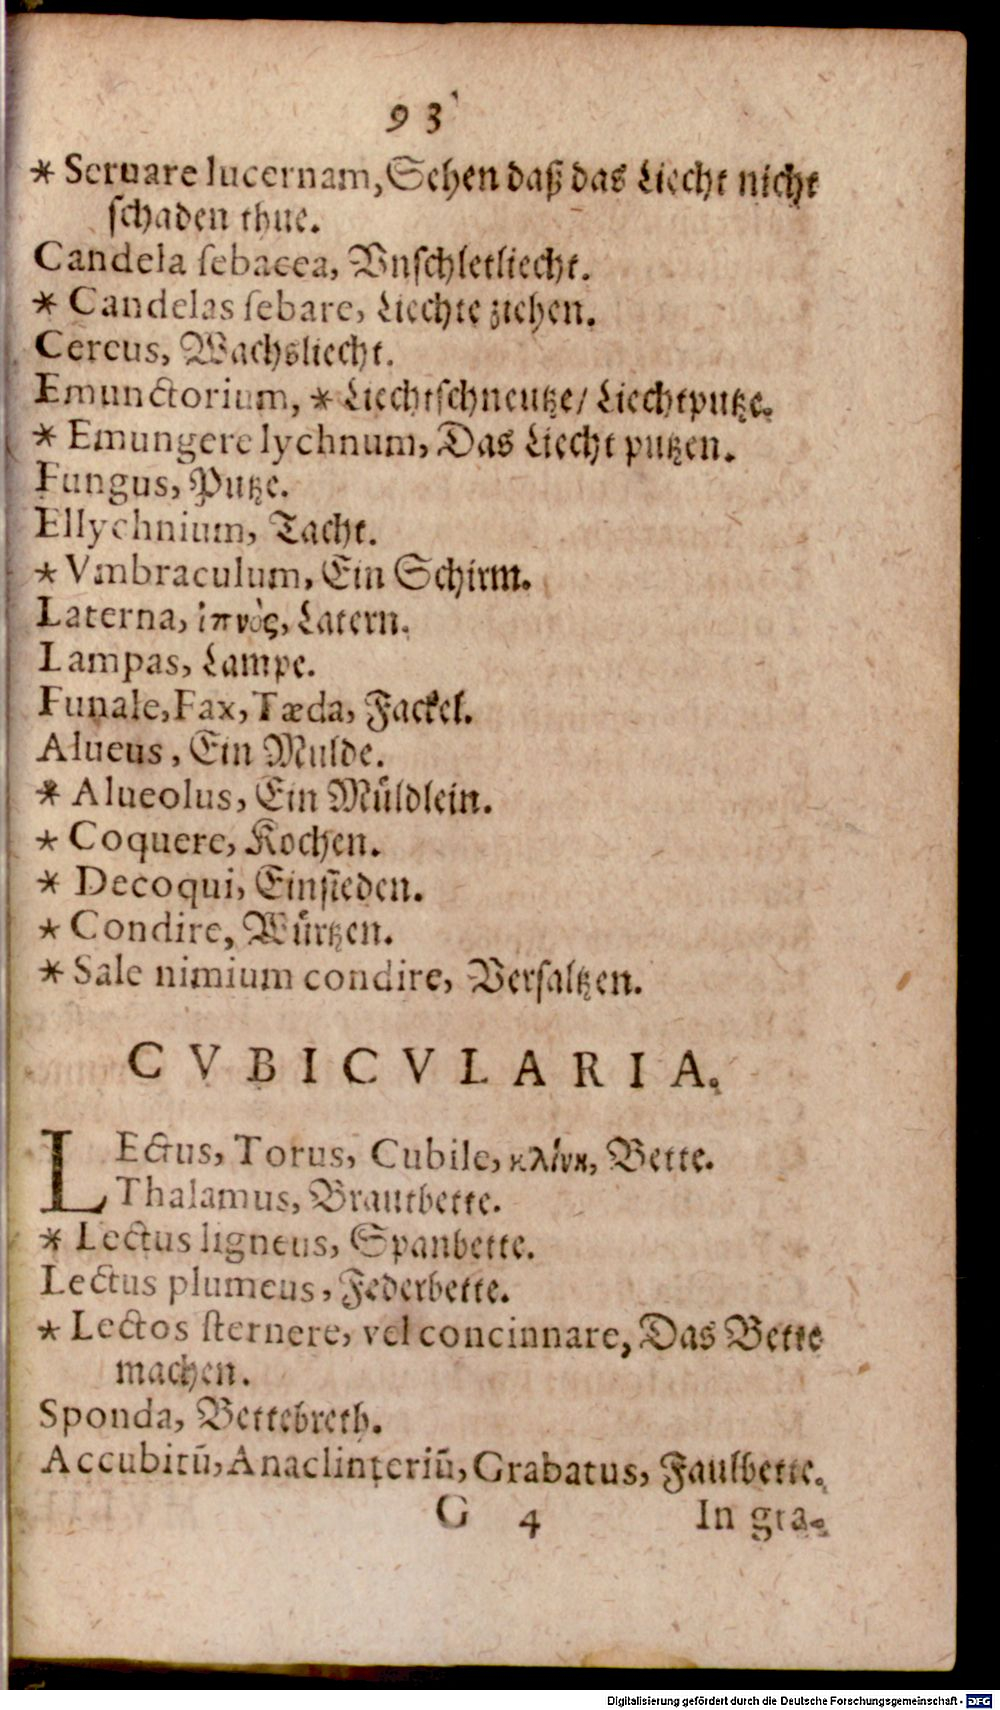 93
* Seruare lucernam, Sehen daß das Liecht nicht
schaden thue.
Candela ſebacea, Vnſchletliecht.
* Candelas ſebare, Liechte ziehen.
Cereus, Wachsliecht.
Emunctorium, * Liechtſchneutze/ Liechtputze.
* Emungere lychnum, Das Liecht putzen.
Fungus, Putze.
Ellychnium, Tacht.
* Vmbraculum, Ein Schirm.
Laterna, ἰπνὸς, Latern.
Lampas, Lampe.
Funale, Fax, Tæda, Fackel.
Alueus, Ein Mulde.
* Alueolus, Ein Muͤldlein.
* Coquere, Kochen.
* Decoqui, Einſieden.
* Condire, Wuͤrtzen.
* Sale nimium condire, Verſaltzen.
CVBICVLARIA.
LEctus, Torus, Cubile, κλίνη, Bette.
Thalamus, Brautbette.
* Lectus ligneus, Spanbette.
Lectus plumeus, Federbette.
* Lectos ſternere, vel concinnare, Das Bette
machen.
Sponda, Bettebreth.
Accubitū, Anaclinteriū, Grabatus, Faulbette.
G 4 In gra-
Digitalisierung gefördert durch die Deutsche Forschungsgemeinschaft - DFG